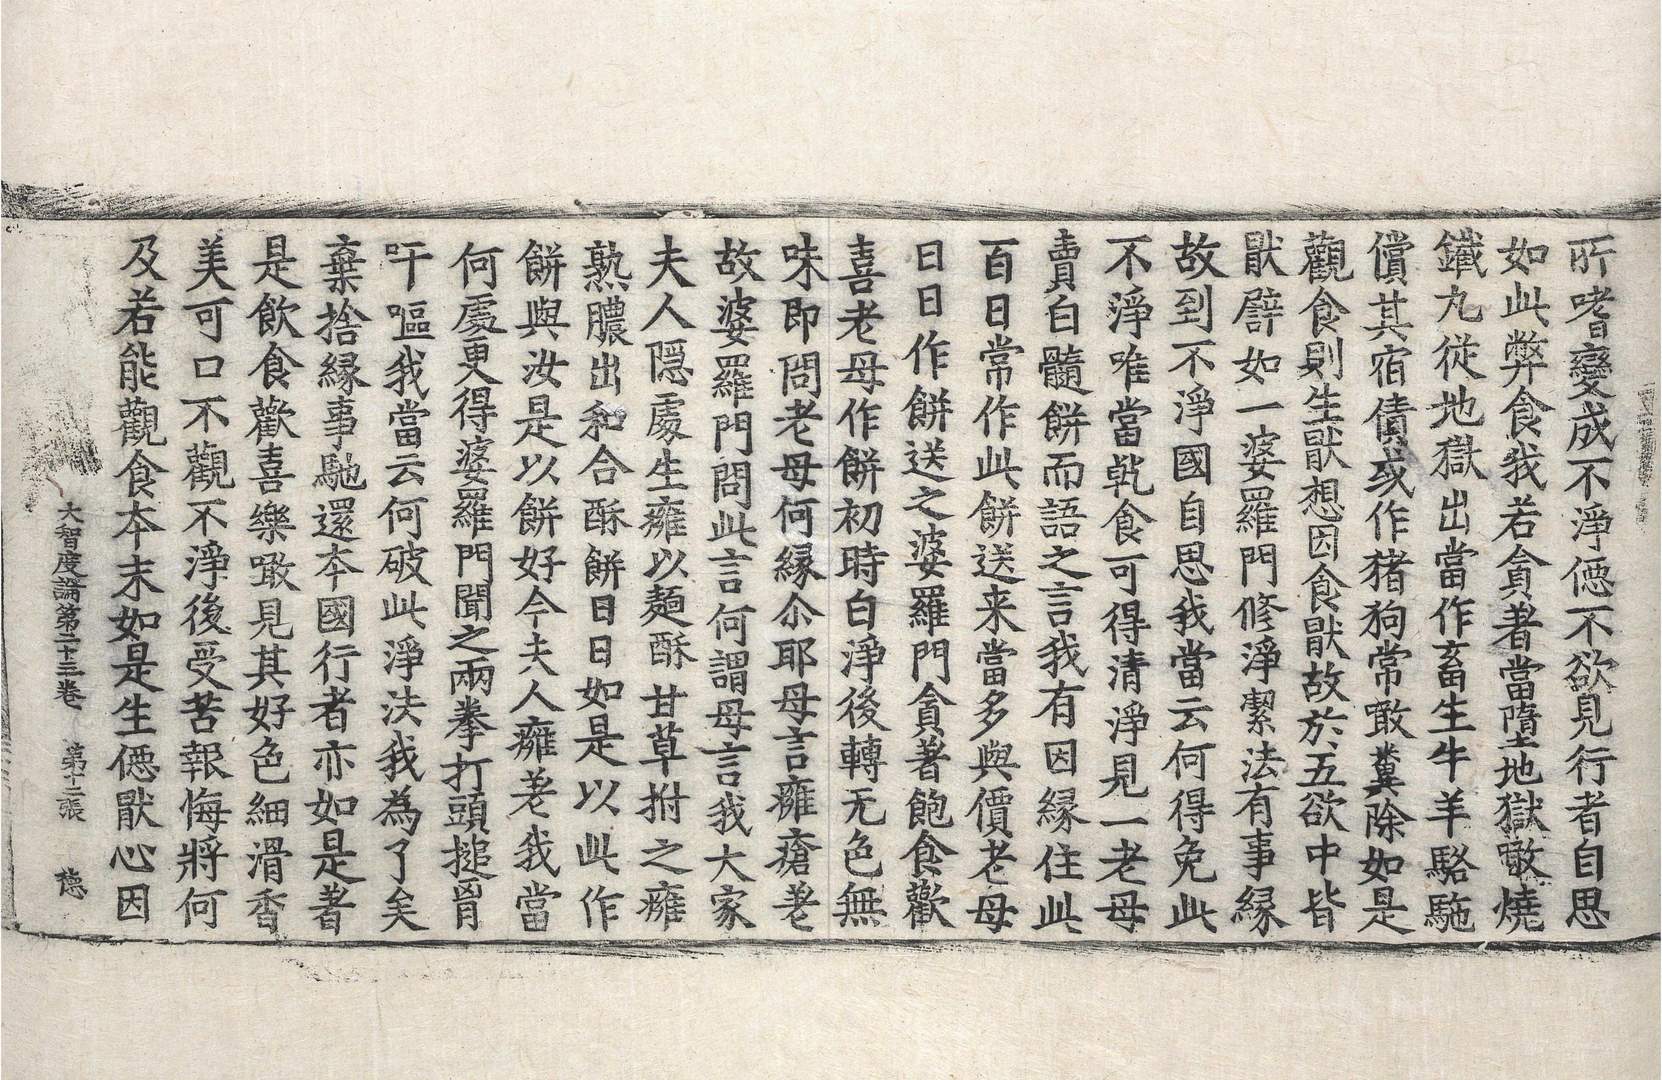 所嗜變成不淨僫不欲見行者自思
如此弊食我若貪著當墮地獄噉燒
鐵丸從地獄出當作畜生牛羊駱駞
償其宿債或作猪狗常噉糞除如是
觀食則生猒想因食猒故於五欲中皆
猒譬如一婆羅門修淨潔法有事緣
故到不淨國自思我當云何得免此
不淨唯當乹食可得清淨見一老母
賣白髓餅而語之言我有因緣住此
百日常作此餅送来當多與價老母
日日作餅送之婆羅門貪著飽食歡
喜老母作餅初時白淨後轉无色無
味即問老母何緣尒耶母言癰瘡差
故婆羅門問此言何謂母言我大家
夫人隱處生癰以麵酥甘草拊之癰
熟膿出和合酥餅日日如是以此作
餅與汝是以餅好今夫人癰差我當
何處更得婆羅門聞之兩拳打頭搥胷
吁嘔我當云何破此淨法我為了矣
棄捨緣事馳還本國行者亦如是著
是飲食歡喜樂噉見其好色細滑香
美可口不觀不淨後受苦報悔將何
及若能觀食本末如是生僫猒心因
大智度論第二十三卷 第十二張 德